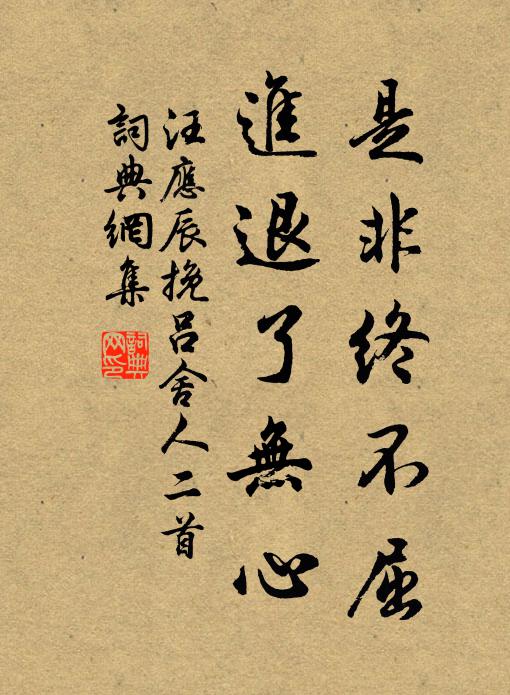 是非終不屈
進退了無心
汪應辰挽呂舍人二首
詞典網集
詞典网印